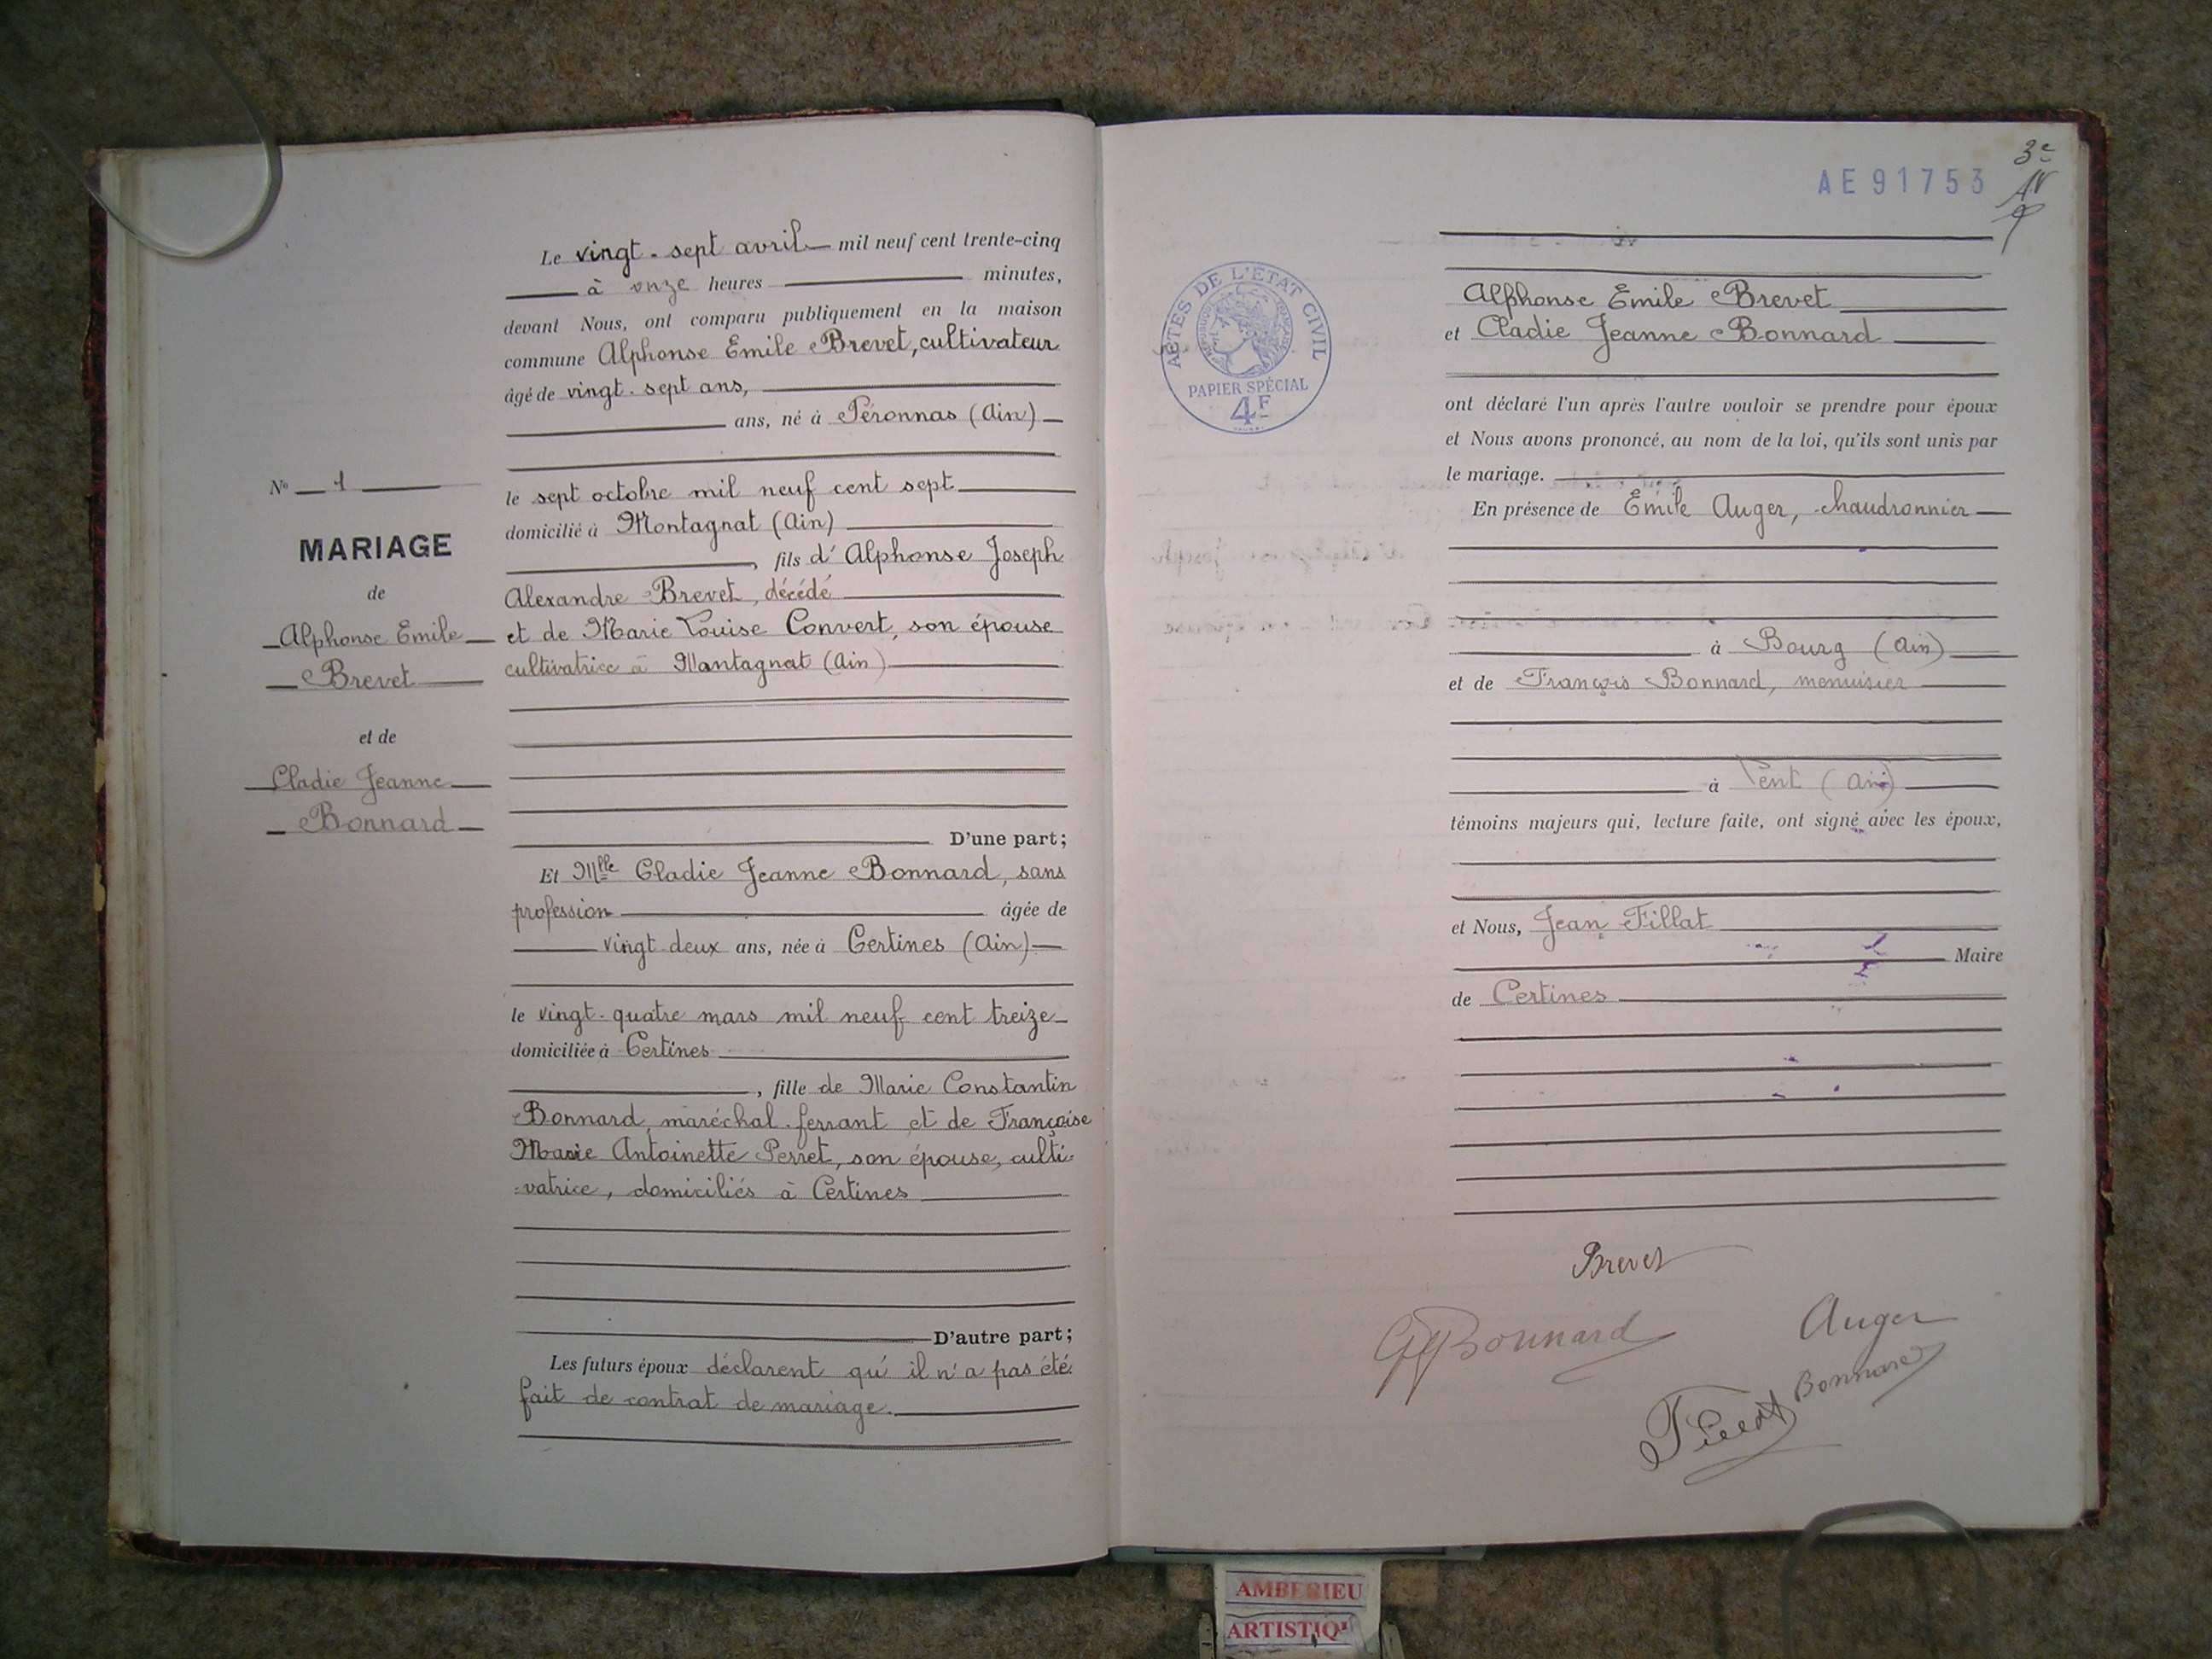 N° 1
MARIAGE
de
Alphonse Emile
Brevet
et de
Cladie Jeanne
Bonnard
Le vingt-sept avril mil neuf cent trente-cinq
à onze heures minutes,
devant Nous, ont comparu publiquement en la maison
commune Alphonse Emile Brevet, cultivateur
âgé de vingt-sept ans,
ans, né à Péronnas (Ain)
le sept octobre mil neuf cent sept
domicilié à Montagnat (Ain)
, fils d'Alphonse Joseph
Alexandre Brevet, décédé
et de Marie Louise Convert, son épouse
cultivatrice à Montagnat (Ain)
D'une part;
Et Mlle Cladie Jeanne Bonnard, sans
profession âgée de
vingt deux ans, née à Certines (Ain)
le vingt-quatre mars mil neuf cent treize
domiciliée à Certines
, fille de Marie Constantin
Bonnard, maréchal-ferrant et de Françoise
Marie Antoinette Perret, son épouse, culti-
-vatrice, domiciliés à Certines
D'autre part;
Les futurs époux déclarent qu'il n'a pas été
fait de contrat de mariage.
AE 91753
3e
ACTES DE L'ETAT CIVIL
PAPIER SPÉCIAL
4F
Alphonse Emile Brevet
et Cladie Jeanne Bonnard
ont déclaré l'un après l'autre vouloir se prendre pour époux
et Nous avons prononcé, au nom de la loi, qu'ils sont unis par
le mariage.
En présence de Emile Auger, chaudronnier
à Bourg (Ain)
et de François Bonnard, menuisier
à Tent (Ain)
témoins majeurs qui, lecture faite, ont signé avec les époux,
et Nous, Jean Fillat
Maire
de Certines
Brevet
Bonnard
Auger
Bonnard
AMBERIEU
ARTISTIQ